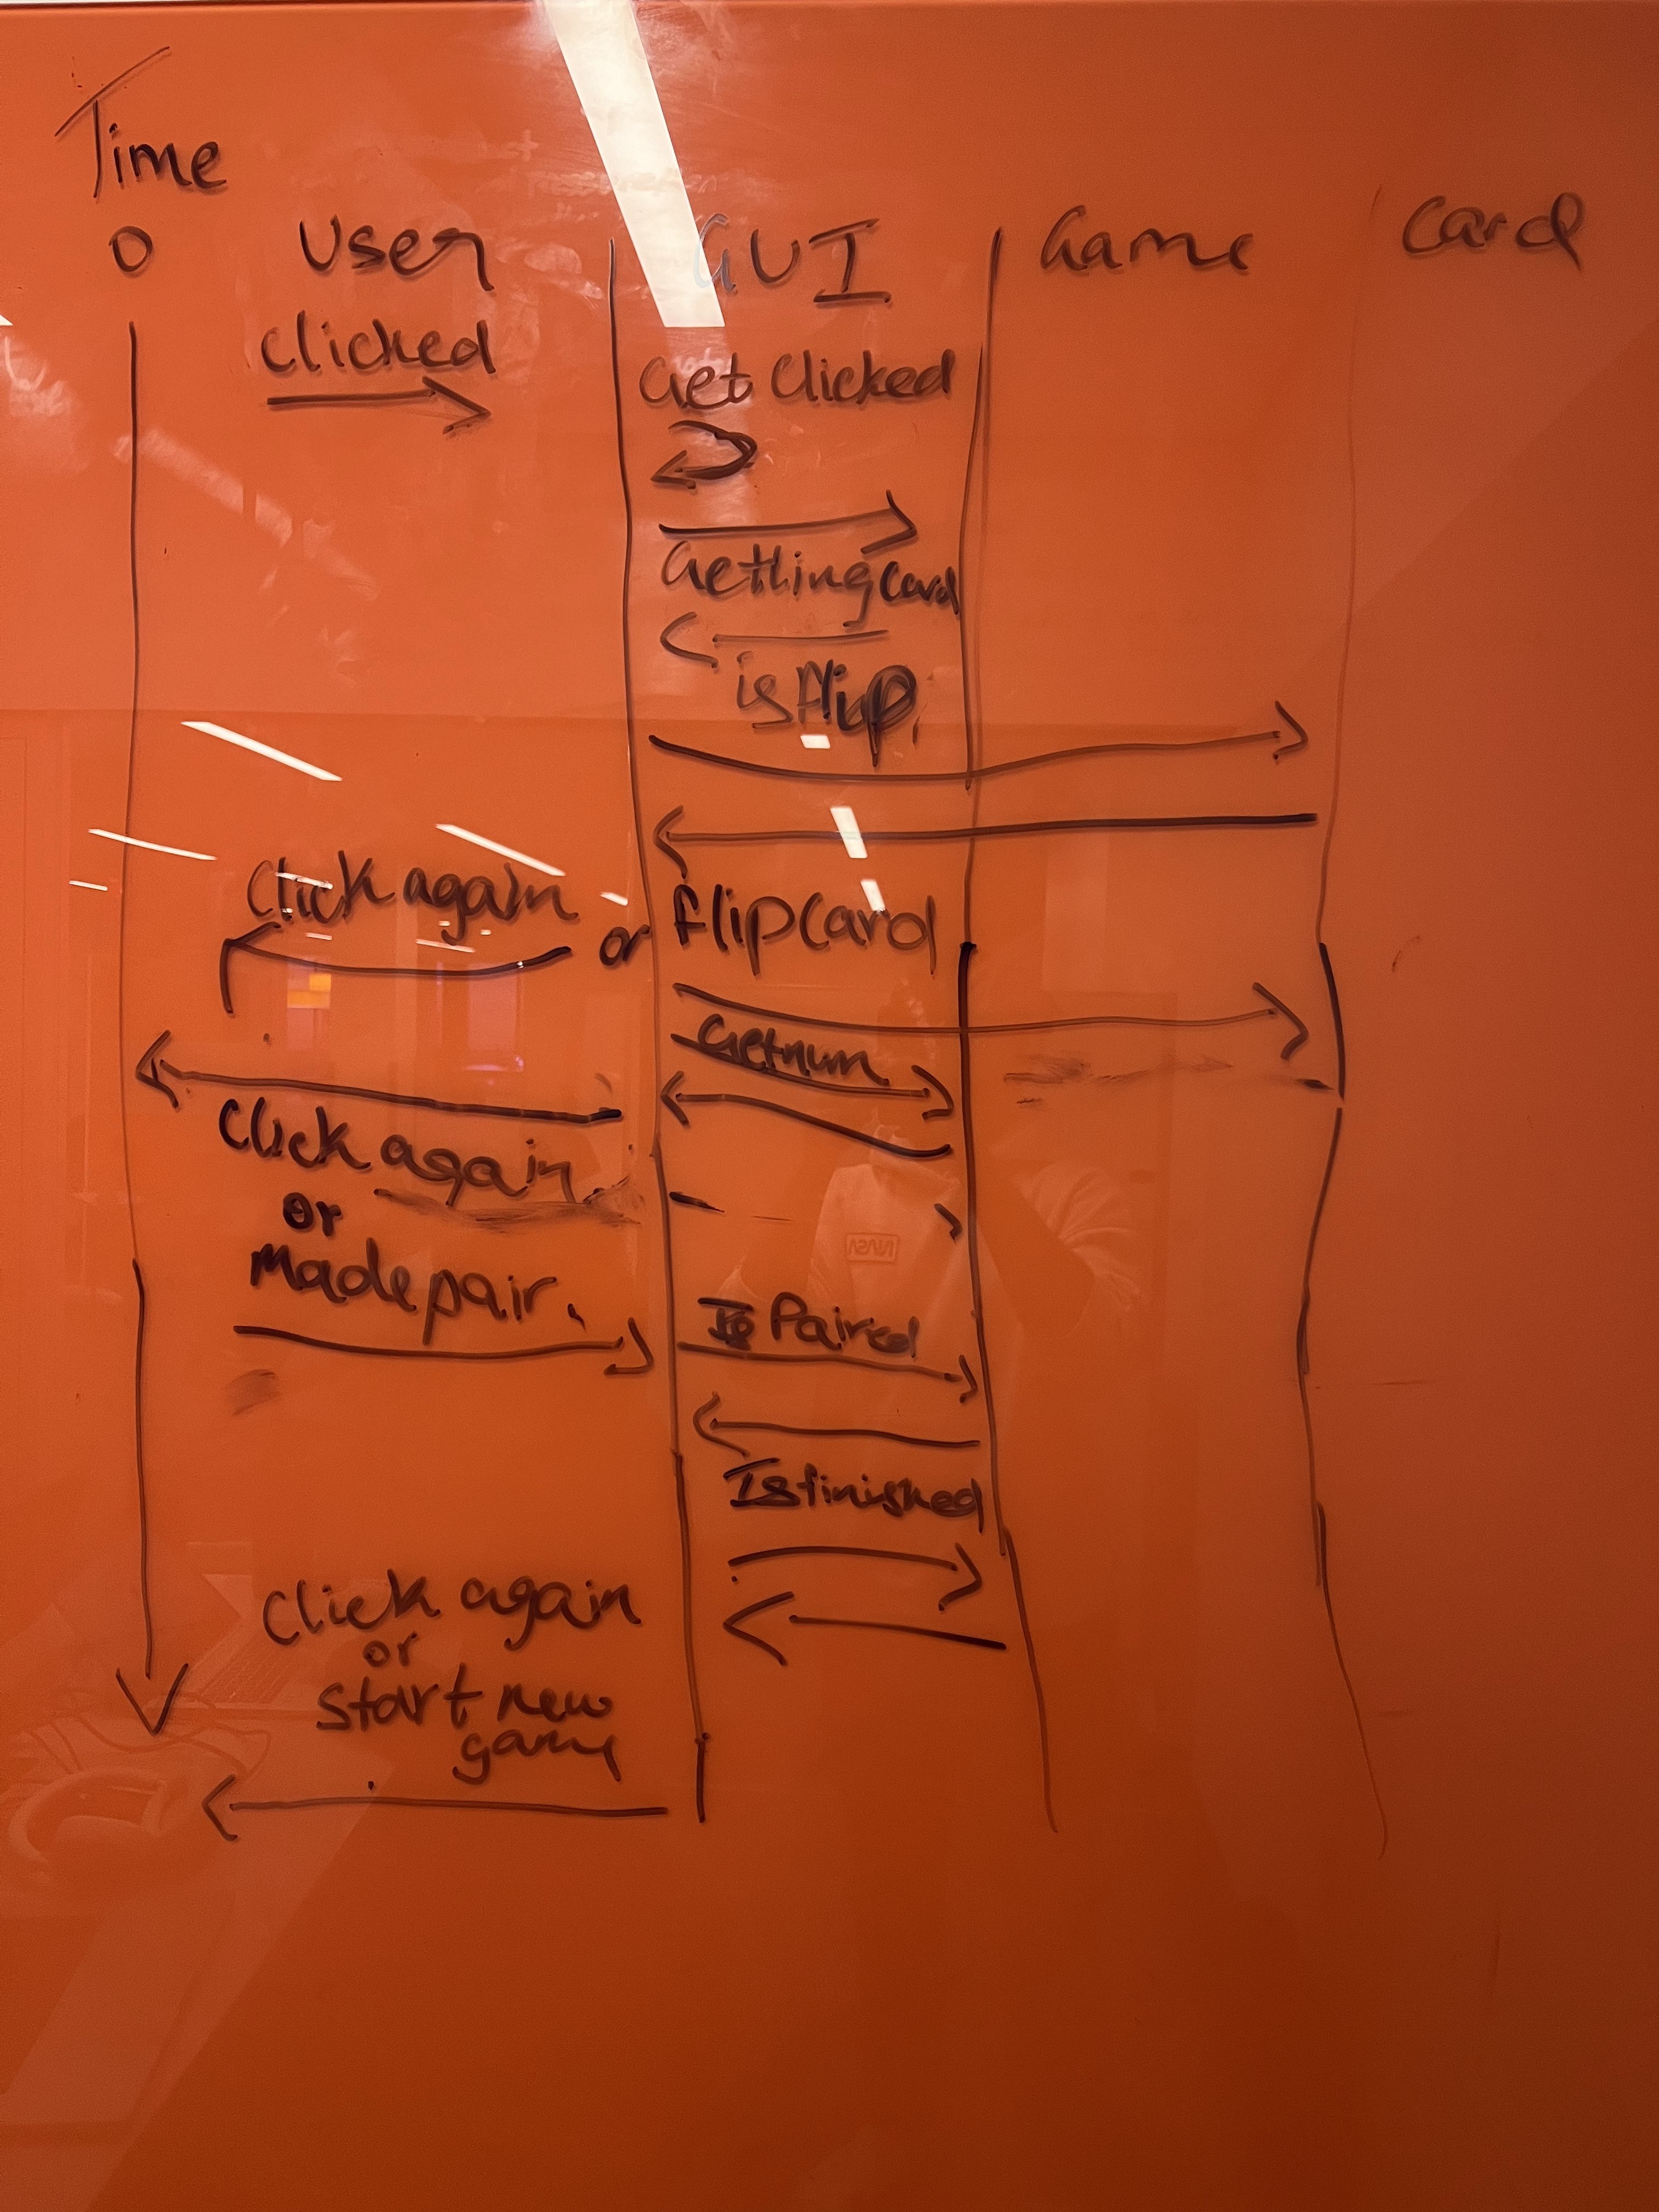 Time
0 User GUI Game Card
Clicked
Get Clicked
Getting Card
isflip
Click again or flipCard
Getnum
Click again
or
Made pair.
Is Paired
Isfinished
Click again
or
start new
game
NASA